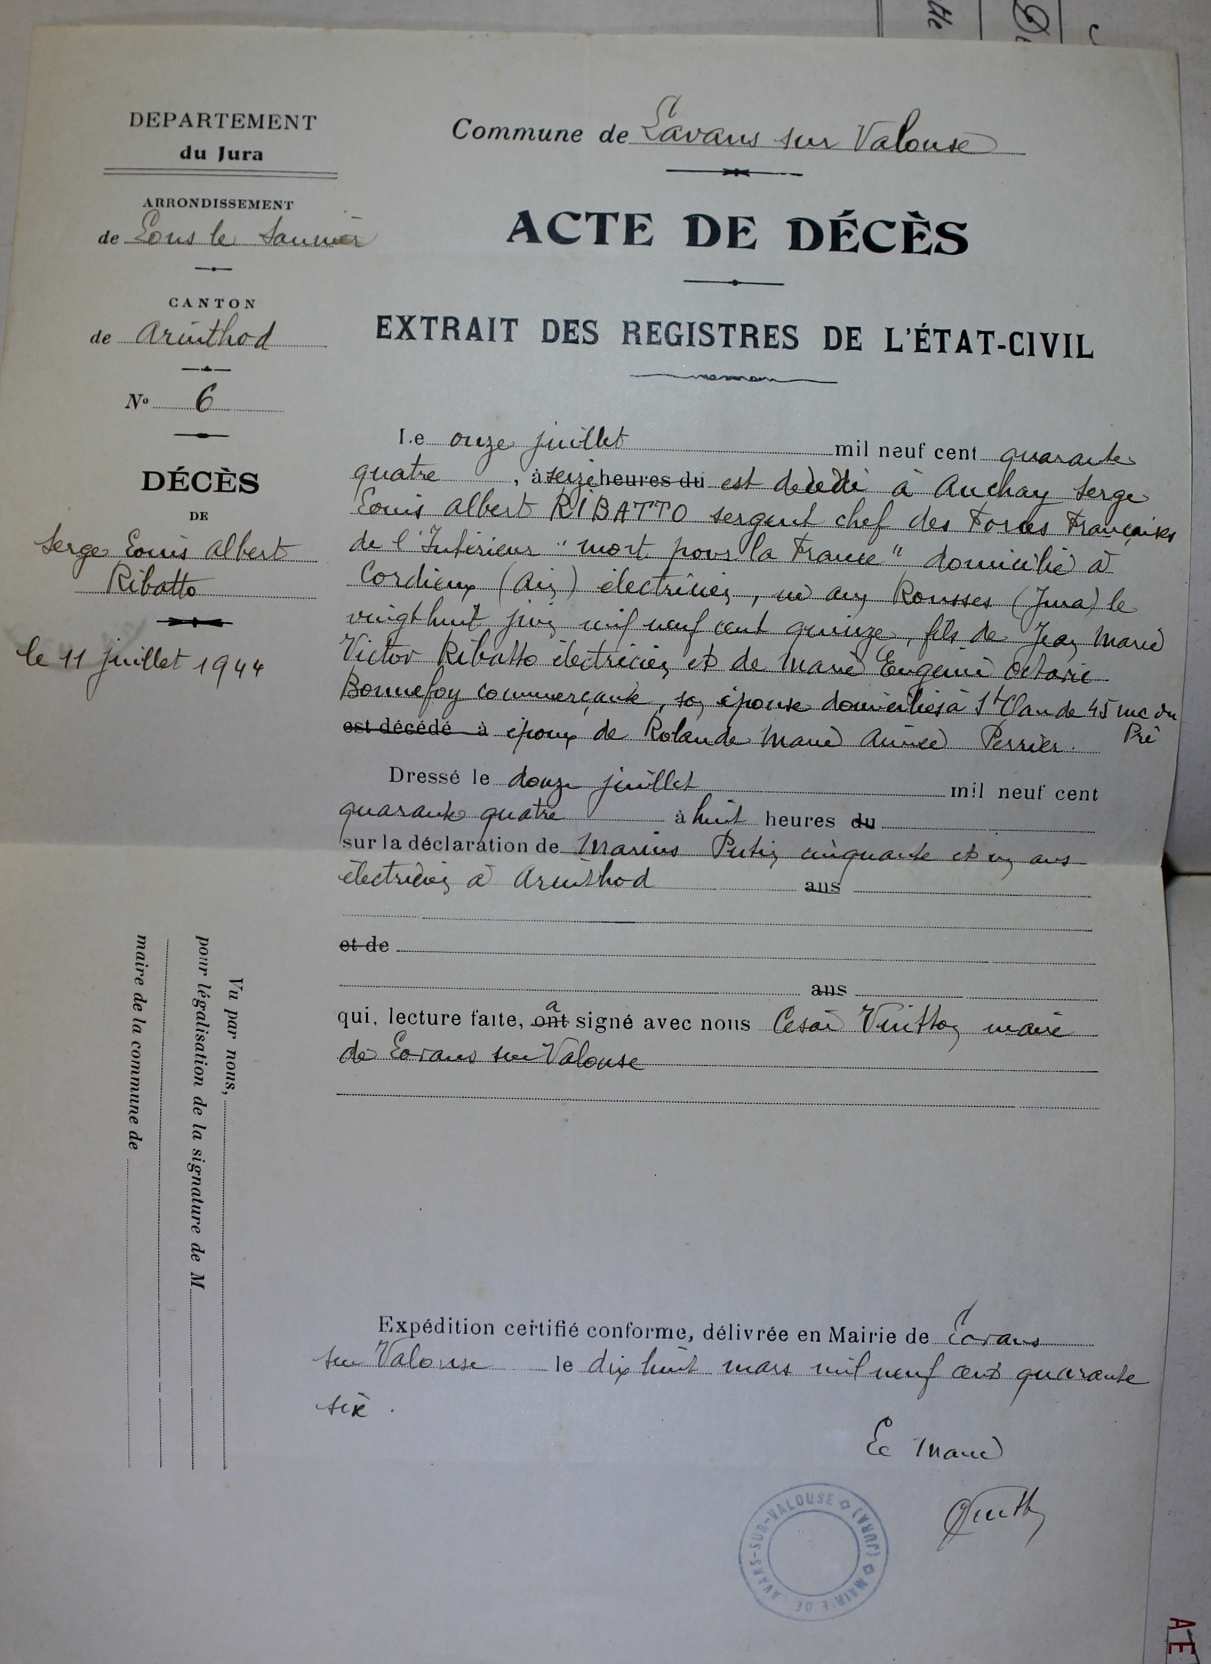 DEPARTEMENT
du Jura
ARRONDISSEMENT
de Lons le Saunier
CANTON
de Arinthod
No 6
DÉCÈS
DE
Serge Louis Albert
Ribatto
le 11 juillet 1944
Commune de Lavans sur Valouse
ACTE DE DÉCÈS
EXTRAIT DES REGISTRES DE L'ÉTAT-CIVIL
Le onze juillet mil neuf cent quarante
quatre, à seize heures du est décédé à Auchay Serge
Louis Albert RIBATTO sergent chef des Forces Françaises
de l'Intérieur "mort pour la France" domicilié à
Cordieux (Ain) électricien, né aux Rousses (Jura) le
vingt huit juin mil neuf cent quinze, fils de Jean Marie
Victor Ribatto électricien et de Marie Eugenie Octavie
Bonnefoy commerçante, son épouse domiciliés à St Claude 45 rue du
Pré
est décédé à époux de Rolande Marie Aimée Perrier.
Dressé le douze juillet mil neuf cent
quarante quatre à huit heures du
sur la déclaration de Marius Putin cinquante et un ans
électricien à Arinthod ans
et de
ans
qui, lecture faite, ont a signé avec nous Cesar Vuitton maire
de Lavans sur Valouse
Vu par nous,
pour légalisation de la signature de M
maire de la commune de
Expédition certifié conforme, délivrée en Mairie de Lavans
sur Valouse le dix huit mars mil neuf cent quarante
six.
Le Maire
MAIRIE DE LAVANS-SUR-VALOUSE (JURA)